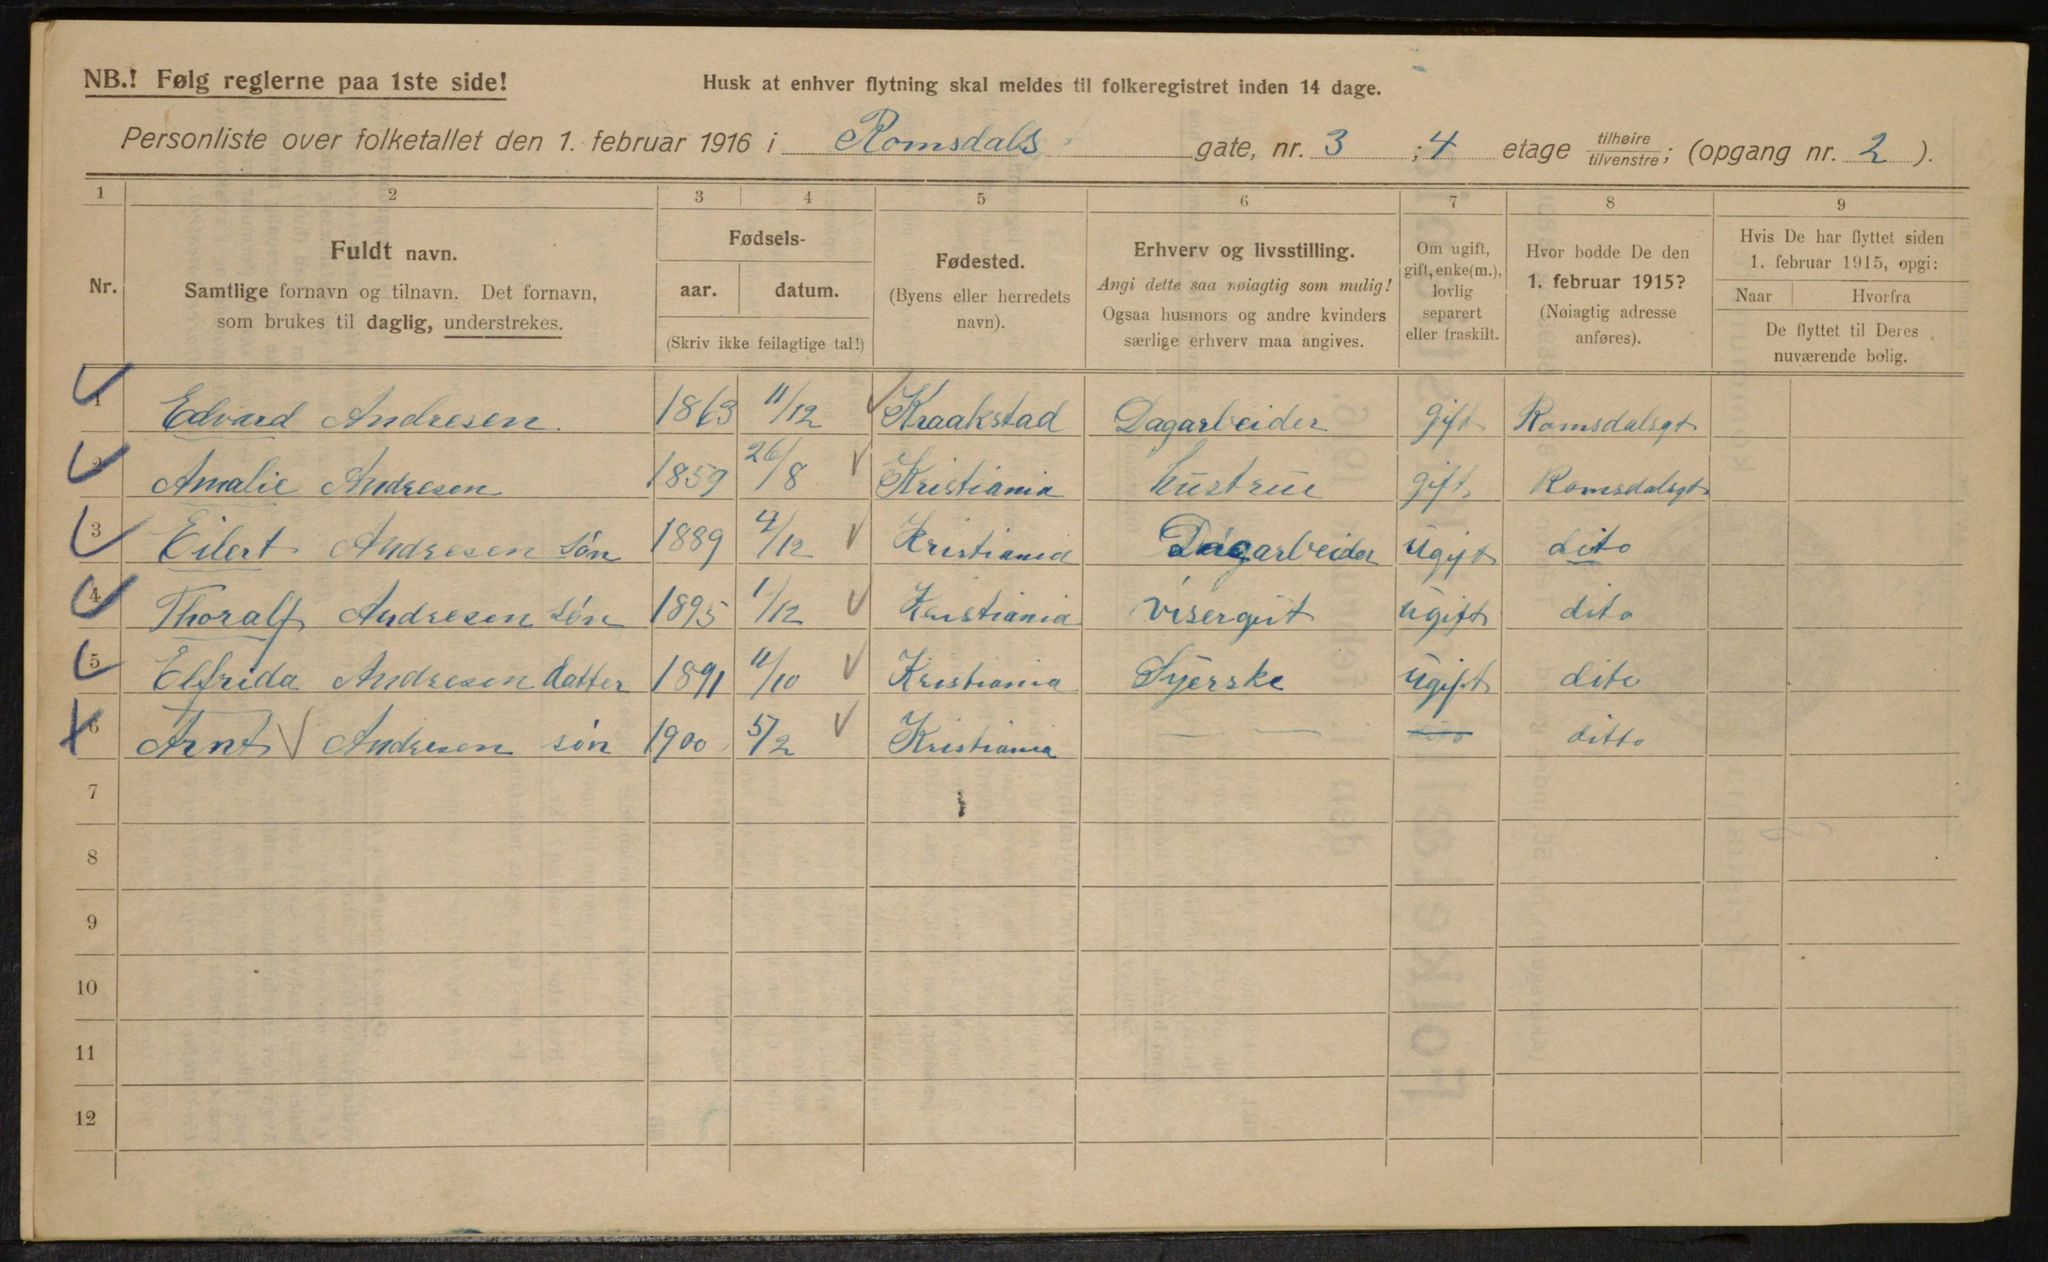 NB.! Følg reglerne paa 1ste side!
Husk at enhver flytning skal meldes til folkeregistret inden 14 dage.
Personliste over folketallet den 1. februar 1916 i Romsdals gate, nr. 3 ; 4 etage tilhøire/tilvenstre; (opgang nr. 2 ).
1 2 3 4 5 6 7 8 9
Nr.
Fuldt navn.
Samtlige fornavn og tilnavn. Det fornavn,
som brukes til daglig, understrekes.
Fødsels-
aar. datum.
(Skriv ikke feilagtige tal!)
Fødested.
(Byens eller herredets
navn).
Erhverv og livsstilling.
Angi dette saa nøiagtig som mulig!
Ogsaa husmors og andre kvinders
særlige erhverv maa angives.
Om ugift,
gift, enke(m.),
lovlig
separert
eller fraskilt.
Hvor bodde De den
1. februar 1915?
(Nøiagtig adresse
anføres).
Hvis De har flyttet siden
1. februar 1915, opgi:
Naar Hvorfra
De flyttet til Deres
nuværende bolig.
1 Edvard Andresen. 1863 11/12 Kraakstad Dagarbeider gift Romsdalsgt
2 Amalie Andresen 1859 26/8 Kristiania hustrue gift Romsdalsgt
3 Eilert Andresen søn 1889 4/12 Kristiania Dagarbeider ugift dito
4 Thoralf Andresen søn 1895 1/12 Kristiania visergut ugift dito
5 Elfrida Andresen datter 1891 11/10 Kristiania Syerske ugift dito
6 Arnt Andresen søn 1900 5/2 Kristiania — — dito ditto
7
8
9
10
11
12